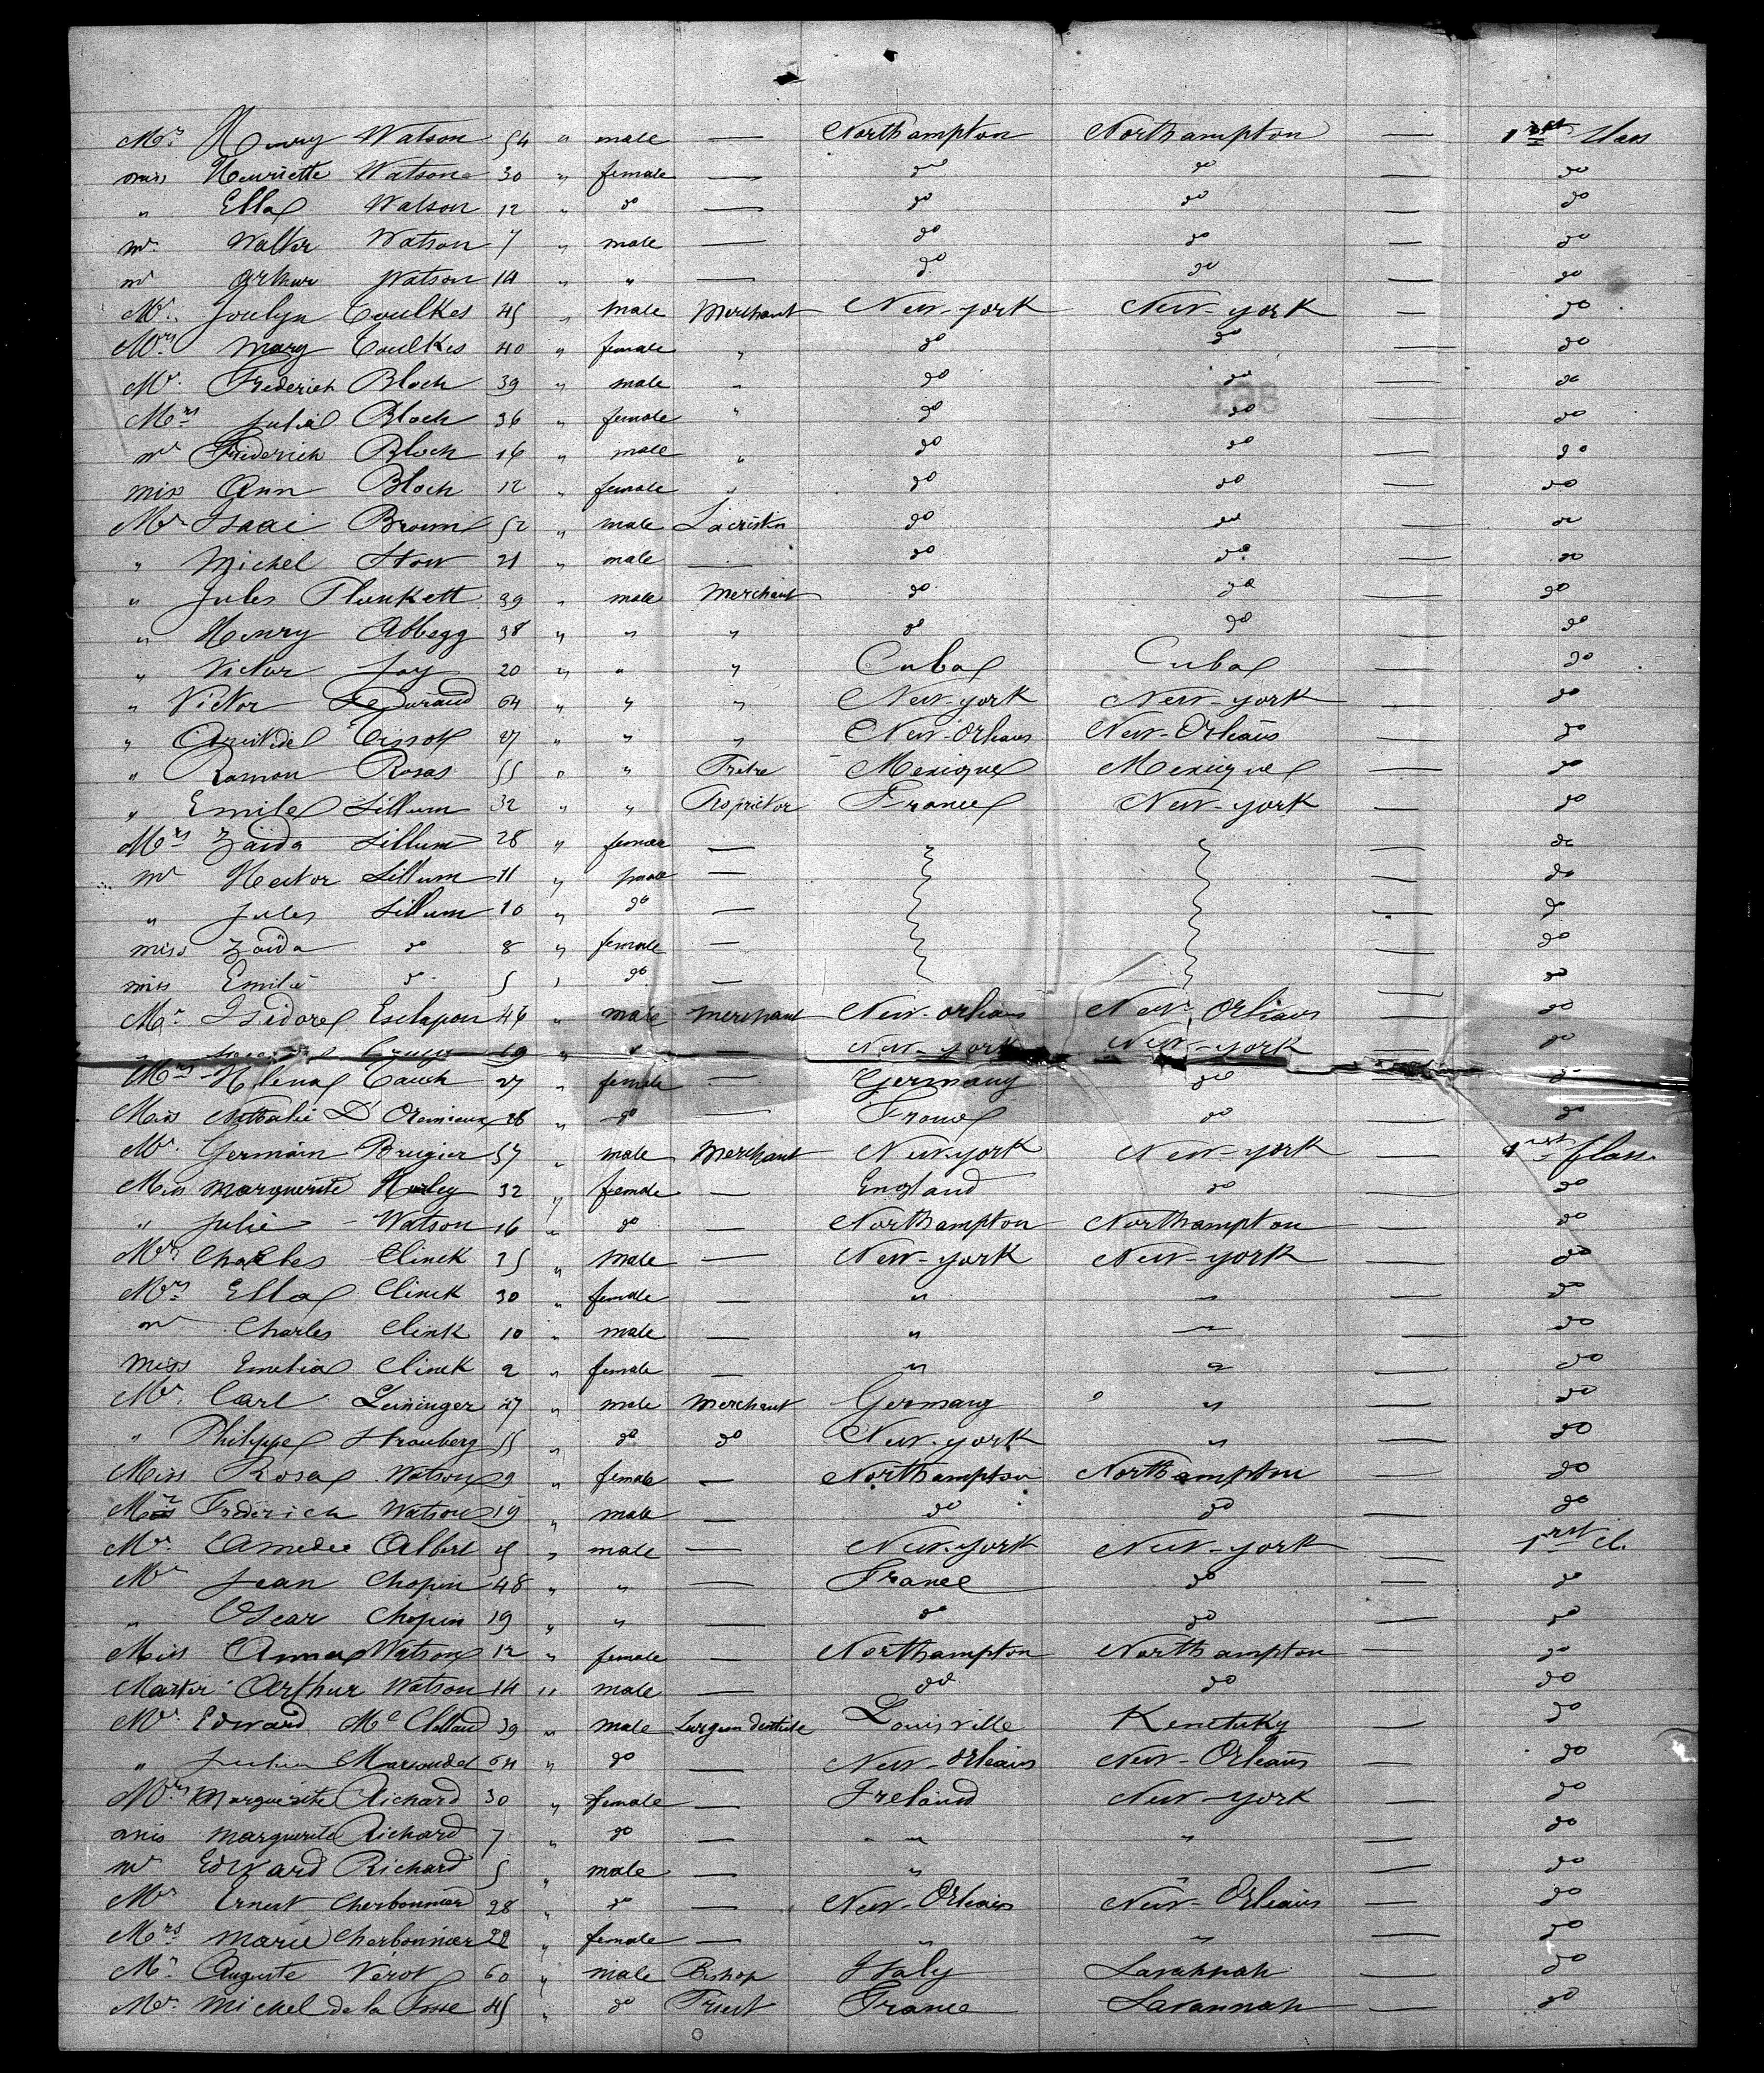 Mr Henry Watson 54 " male — Northampton Northampton — 1rst Class
miss Henriette Watson 30 " female — do do — do
" Ella Watson 12 " do — do do — do
mr Walter Watson 7 " male — do do — do
mr Arthur Watson 14 " " — do do — do
Mr Joulyn Coulkes 45 " male Merchant New-york New-york — do
Mrs Mary Coulkes 40 " female " do do — do
Mr Frederich Bloch 39 " male " do do — do
Mrs Julia Bloch 36 " female " do do — do
mr Friderich Bloch 16 " male " do do — do
miss Ann Bloch 12 " female " do do — do
Mr Isaac Brown 52 " male do do — do
" Michel Stow 21 " male — do do — do
" Jules Plunkett 39 " male Merchant do do — do
" Henry Abbegg 38 " " " do do — do
" Victor Joy 20 " " " Cuba Cuba — do
" Victor Durand 64 " " " New-york New-york — do
" Tissot 27 " " " New-Orleans New-Orleans — do
" Ramon Rosas 55 " " Prêtre Mexique Mexique — do
" Emile Lillum 32 " " Proprietor France New-york — do
Mrs Zaïda Lillum 28 " female — — do
mr Hector Lillum 11 " male — — do
" Jules Lillum 10 " do — — do
miss Zaïda do 8 " female — — do
miss Emilie do 5 " do — — do
Mr Isidore Esclapon 46 " male merchant New-orleans New-Orleans — do
19 " " — New-york New-york — do
Mrs Helena Cauch 27 " female — Germany do — do
Miss Nathalie D' 26 " do — France do — do
Mr Germain Brugier 57 " male Merchant New-york New-york — 1rst Class
Miss Marguerite Hurley 32 " female — England do — do
" Julie - Watson 16 " do — Northampton Northampton — do
Mr Charles Clinck 35 " Male — New-york New-york — do
Mrs Ella Clinck 30 " female — " " — do
mr Charles Clink 10 " male — " " — do
miss Emelia Clinck 2 " female — " " — do
Mr Carl Leininger 27 " male Merchant Germany " — do
" Philippe Strauberg 55 " do do New-york " — do
Miss Rosa Watson 9 " female — Northampton Northampton — do
Mr Frederich Watson 19 " male — do do — do
Mr Amedee Albert 45 " male — New-york New-york — 1rst cl.
Mr Jean Chopin 48 " " — France do — do
" Oscar Chopin 19 " " — do do — do
Miss Anna Watson 12 " female — Northampton Northampton — do
Master Arthur Watson 14 " male — do do — do
Mr Edward Mc Clelland 39 " male Surgeon dentiste Louisville Kenctuky — do
" Julien Marsoudet 64 " do — New-orleans New-Orleans — do
Mrs Marguerite Richard 30 " female — Ireland New-york — do
miss marguerite Richard 7 " do — " " — do
mr Edward Richard 5 " male — " " — do
Mr Ernest Cherbonnier 28 " do — New-Orleans New-Orleans — do
Mrs Marie Cherbonnier 22 " female — " " — do
Mr Auguste Verot 60 " male Bishop Italy Savannah — do
Mr Michel de la Fosse 45 " do Priest France Savannah — do